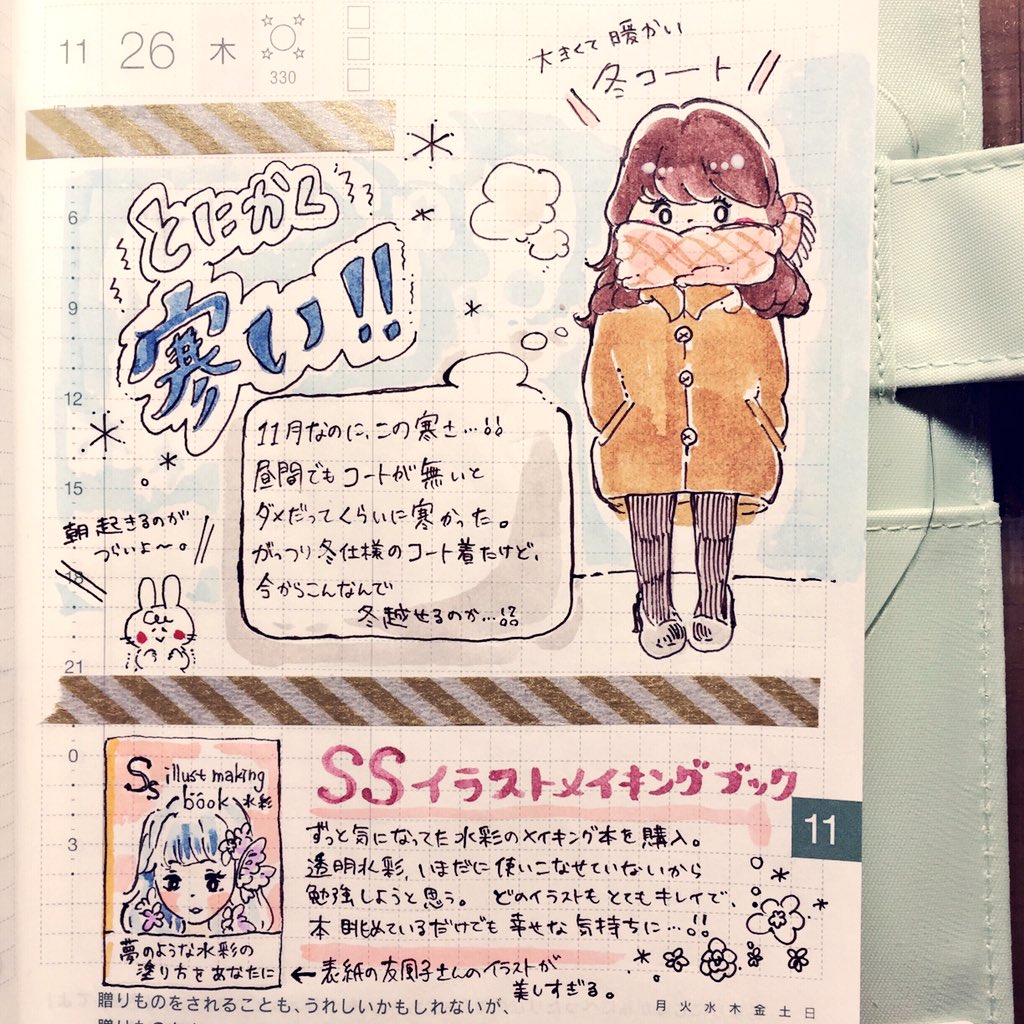 11 26 木
330
大きくて暖かい
冬コート
とにかく
寒い!!
6
9
12
15
18
21
0
3
11月なのに、この寒さ…!!
昼間でもコートが無いと
ダメだってくらいに寒かった。
がっつり冬仕様のコート着たけど、
今からこんなんで
冬越せるのか…!?
朝起きるのが
つらいよ〜。
SS illust making
book 水彩
夢のような水彩の
塗り方をあなたに
SSイラストメイキングブック
ずっと気になってた水彩のメイキング本を購入。
透明水彩、いまだに使いこなせていないから
勉強しようと思う。どのイラストもとてもキレイで、
本眺めているだけでも幸せな気持ちに…!!
←表紙の友風子さんのイラストが
美しすぎる。
11
贈りものをされることも、うれしいかもしれないが、
月 火 水 木 金 土 日